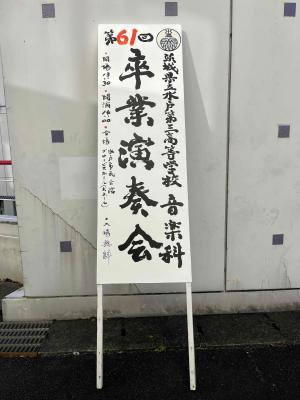 茨城県立水戸第三高等学校 音楽科
第61回
卒業演奏会
・開場 ・開演 ・会場 水戸市民会館
・入場無料